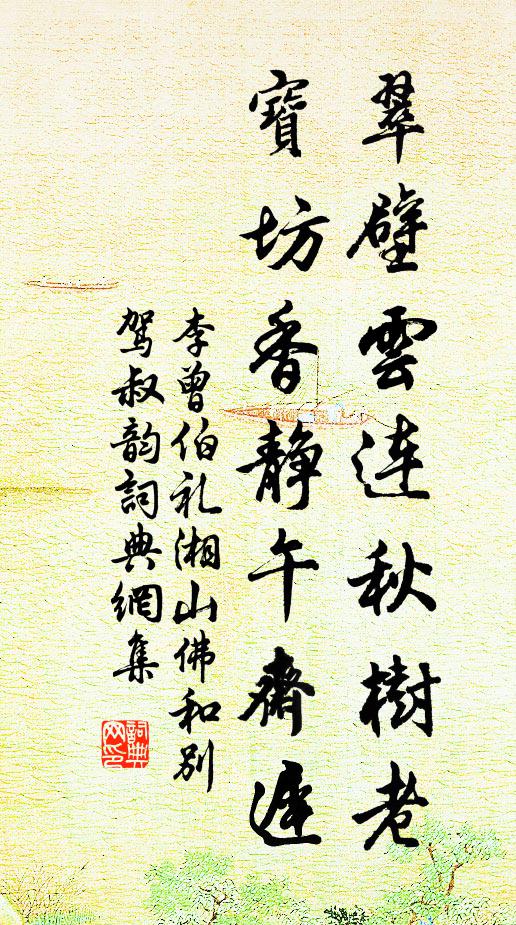 翠壁雲連秋樹老
寶坊香靜午齋遲
李曾伯礼湘山佛和别
驾叔韵詞典網集
詞典网印